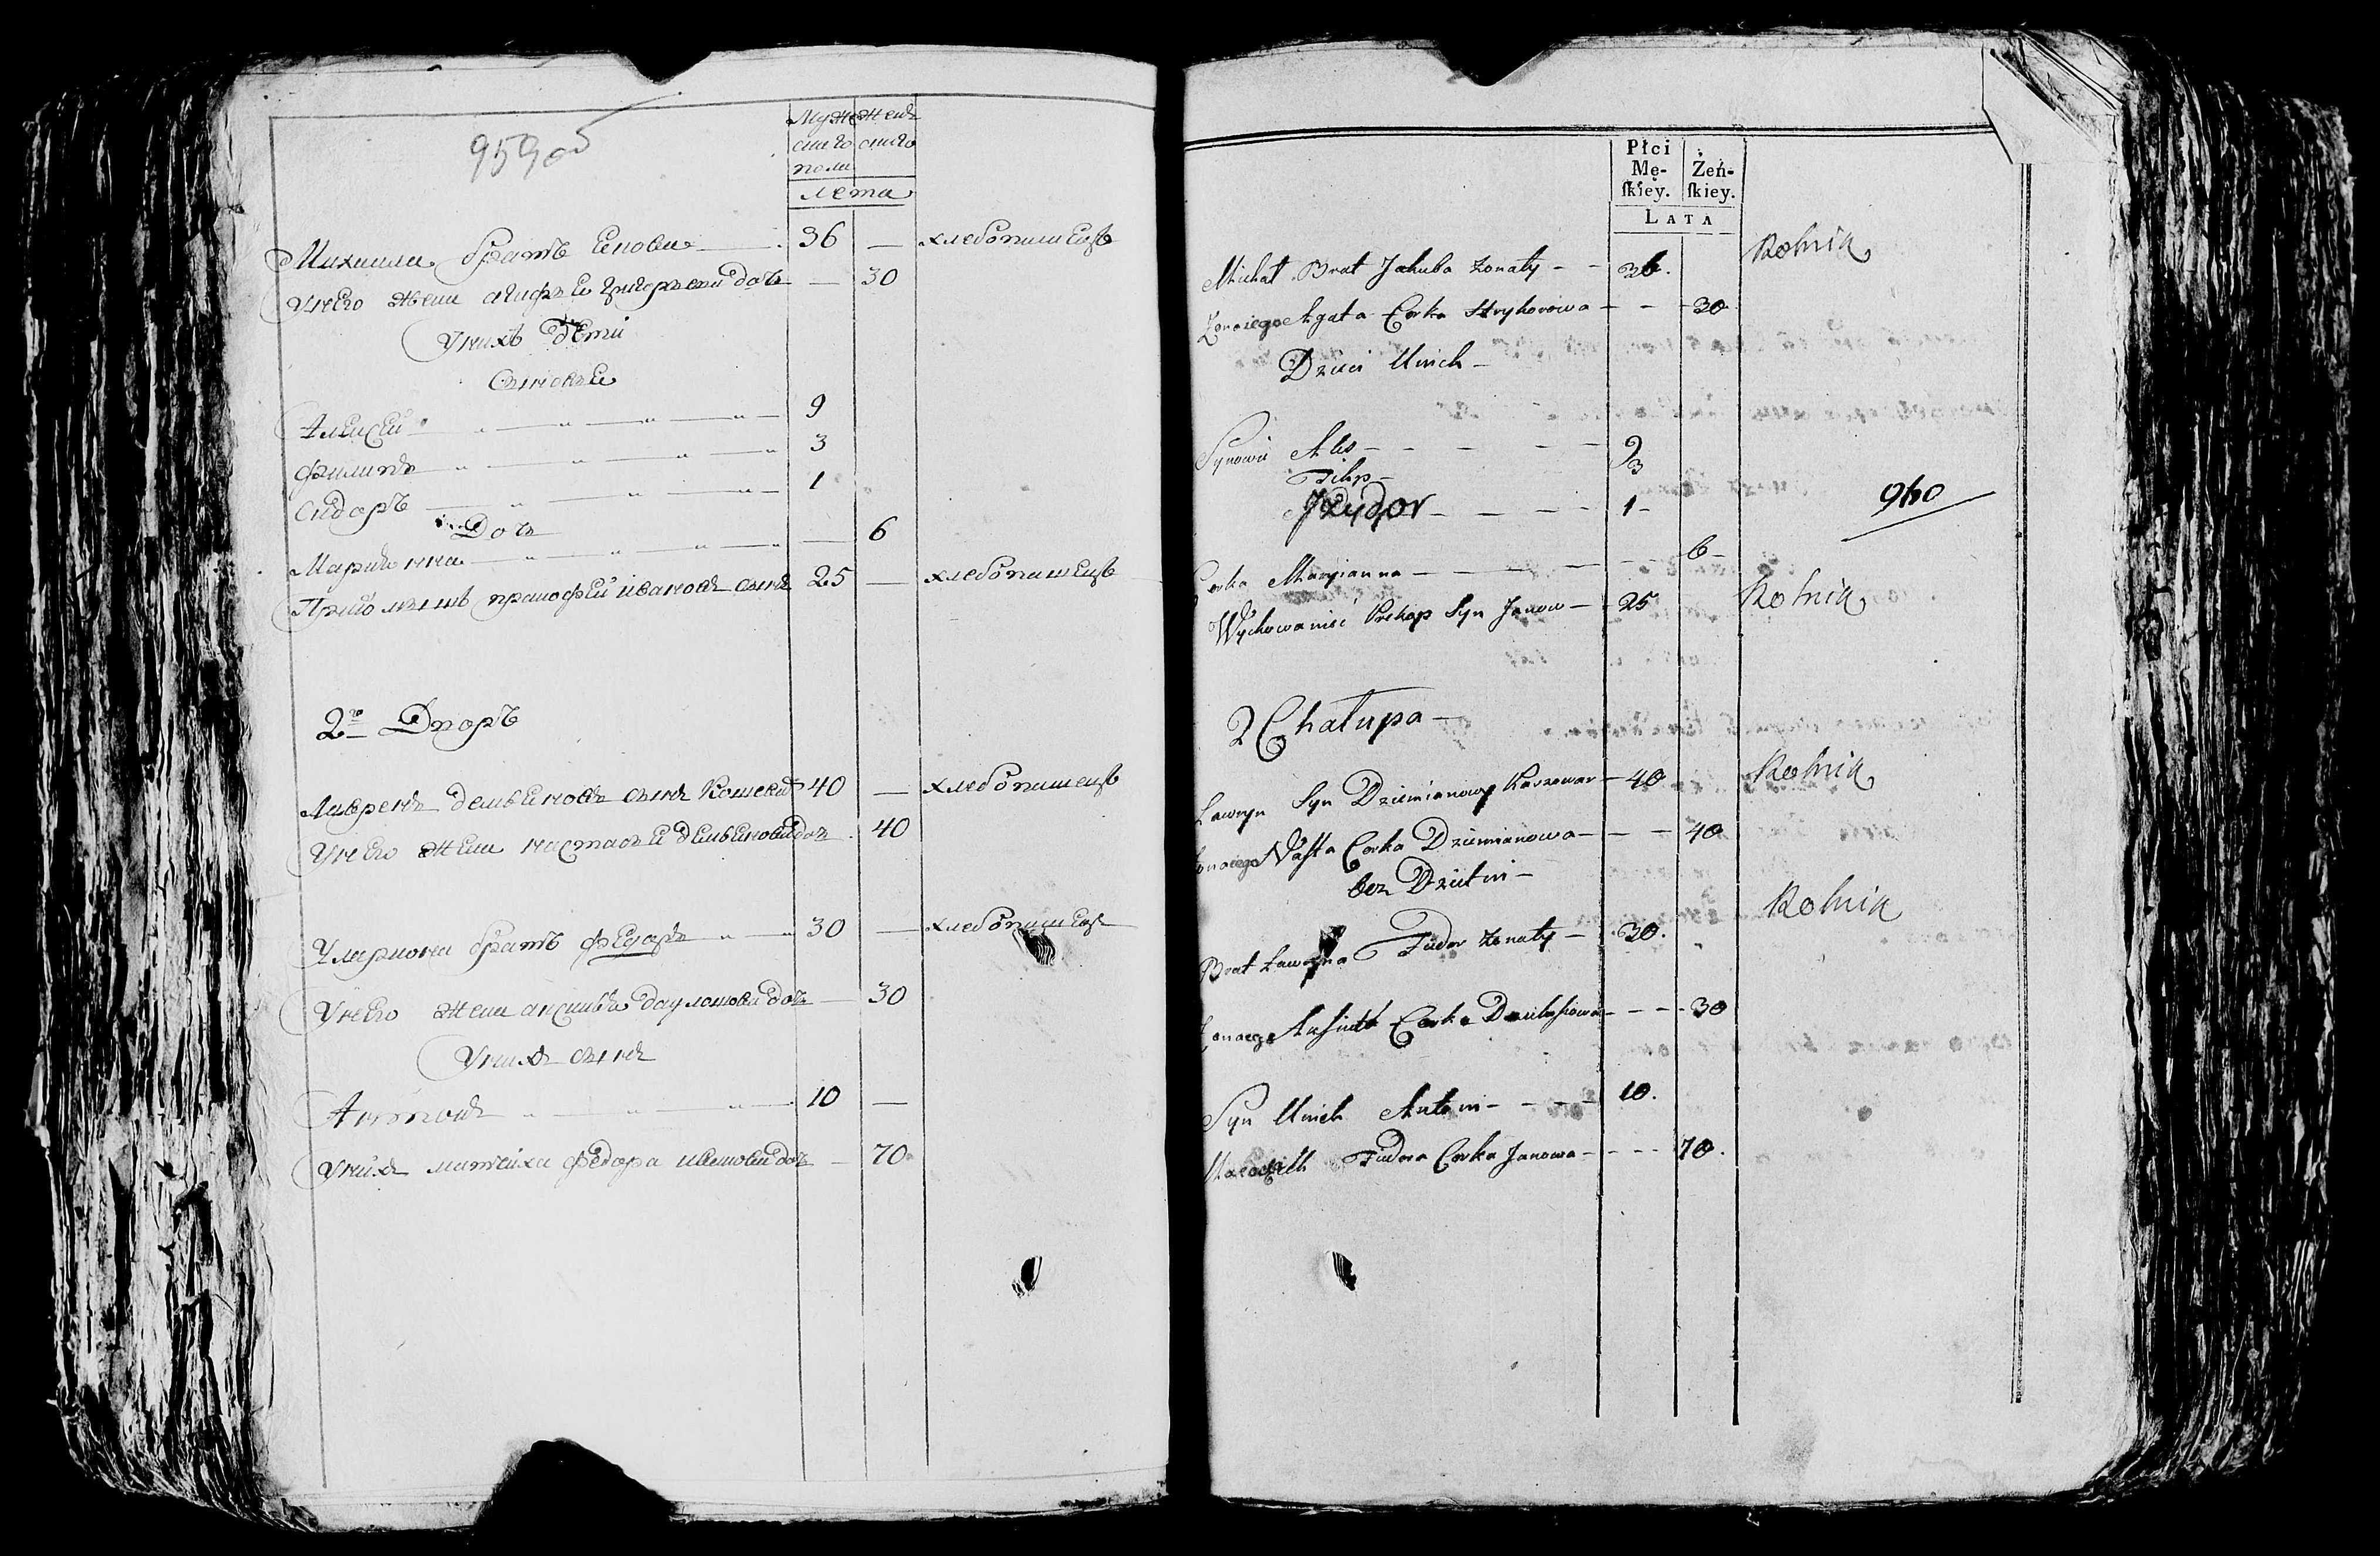 959об
Мужескаго пола Женскаго
Лета
Михаила братъ Еновъ 36 — хлебопашецъ
У него жена агафья григорьева дочь — 30
У нихъ дети
Сыновья
Алексей 9
Филипъ 3
Сидоръ 1
Дочь
Марьянна — 6
Приомышъ пракофей ивановъ сынъ 25 — хлебопашецъ
2й Дворъ
Лавренъ демьяновъ сынъ 40 — хлебопашецъ
У него жена настасья демьянова дочь 40
братъ федоръ 30 — хлебопашецъ
У него жена аксинья дочь — 30
У нихъ сынъ
Антонъ 10 —
У нихъ матчиха федора иванова дочь — 70
Płci Mę-ſkiey. Żeń-ſkiey.
LATA
Michał Brat Jakuba żonaty - - 36. Rolnik
Żona iego Agata Corka Hryhorowa - - - 30
Dzieci Unich -
Synowie Ales - - - - 9
Filip - 3
Jzydor - - - - 1 -
960
Corka Maryanna - - - 6 -
Wychowaniec Prokop Syn Janow - 25 Rolnik
2 Chałupa -
Ławryn Syn Dziemianowy - 40 Rolnik
Żona iego Nasta Corka Dziemianowa - - - 40
bez Dzietni -
Brat Ławryna Fiudor żonaty - 30. Rolnik
Żona iego Corka - - - 30
Syn Unich Antoni - - - - 10.
Fiudora Corka Janowa - - - - 70.